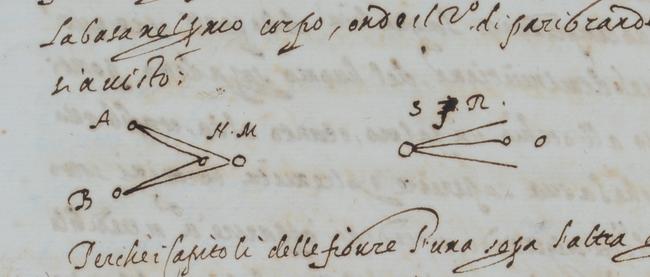 la basa nel suo corpo, onde il 2º di pari grande
si a visto:
A H. M S T. R.
B
Perche i Capitoli delle figure l'una sopa l'altra